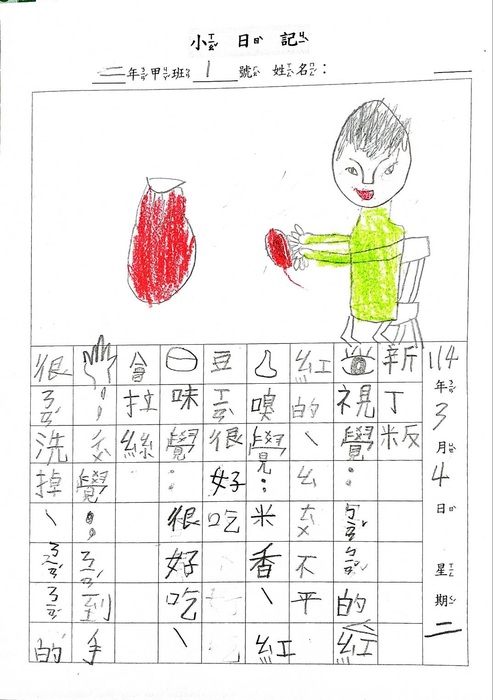 小ㄒㄧㄠˇ日ㄖˋ記ㄐㄧˋ
二年ㄋㄧㄢˊ甲ㄐㄧㄚˇ班ㄅㄢ 1 號ㄏㄠˋ 姓ㄒㄧㄥˋ名ㄇㄧㄥˊ：
114年ㄋㄧㄢˊ3月ㄩㄝˋ4日ㄖˋ 星ㄒㄧㄥ期ㄑㄧˊ二
新丁粄
視覺：的紅
紅的、ㄠ ㄊㄨ不平
嗅覺：米香、紅
豆很好吃
味覺：很好吃、
會拉絲
覺：到手
很洗掉、的